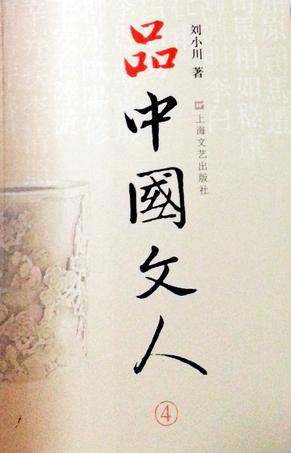 品中國文人
④
刘小川 著
上海文艺出版社